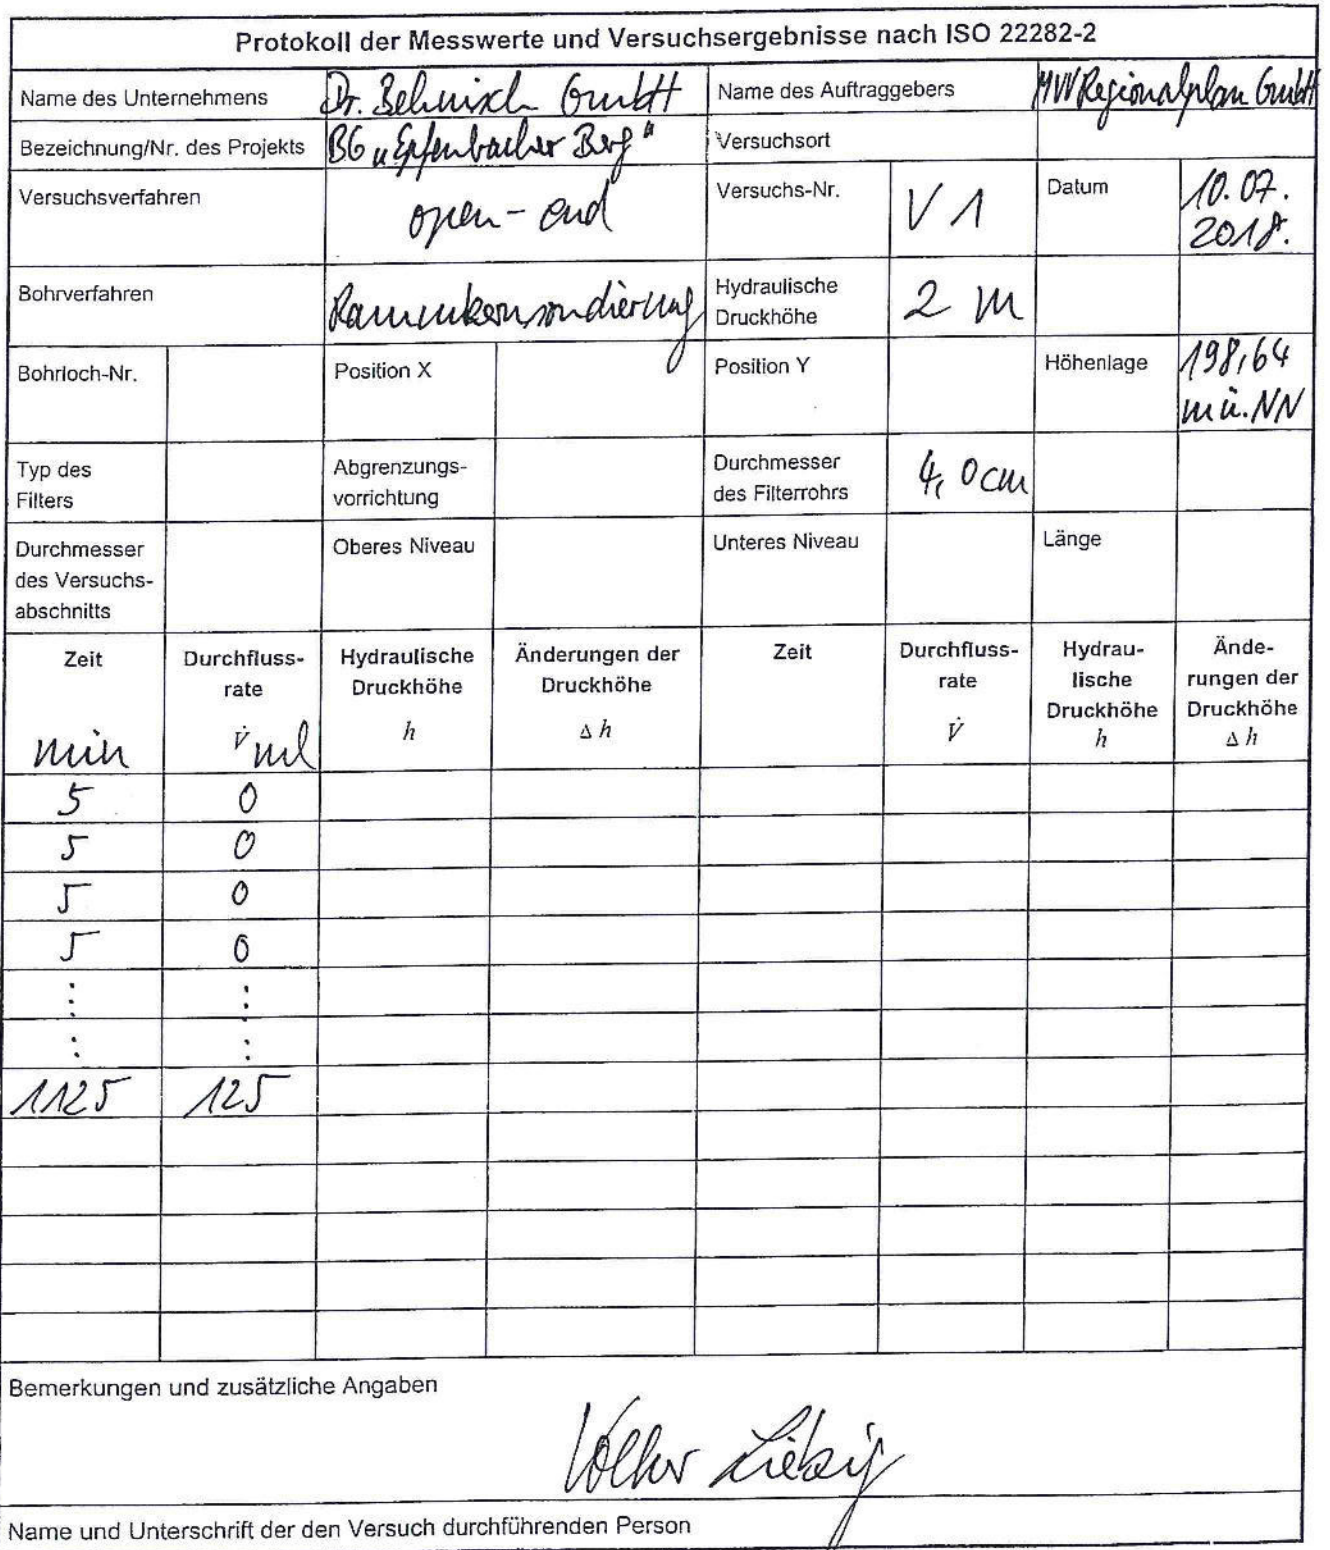 Protokoll der Messwerte und Versuchsergebnisse nach ISO 22282-2
Name des Unternehmens Dr. Behnisch GmbH Name des Auftraggebers MVV Regionalplan GmbH
Bezeichnung/Nr. des Projekts BG "Epfenbacher Berg" Versuchsort
Versuchsverfahren open-end Versuchs-Nr. V 1 Datum 10.07.
2018.
Bohrverfahren Rammkernsondierung Hydraulische
Druckhöhe 2 m
Bohrloch-Nr. Position X Position Y Höhenlage 198,64
m ü. NN
Typ des
Filters
Abgrenzungs-
vorrichtung
Durchmesser
des Filterrohrs
4,0 cm
Durchmesser
des Versuchs-
abschnitts
Oberes Niveau Unteres Niveau Länge
Zeit
min
Durchfluss-
rate
V̇ ml
Hydraulische
Druckhöhe
h
Änderungen der
Druckhöhe
Δ h
Zeit
Durchfluss-
rate
V̇
Hydrau-
lische
Druckhöhe
h
Ände-
rungen der
Druckhöhe
Δ h
5 0
5 0
5 0
5 0
⋮ ⋮
1125 125
Bemerkungen und zusätzliche Angaben
Volker Liebig
Name und Unterschrift der den Versuch durchführenden Person